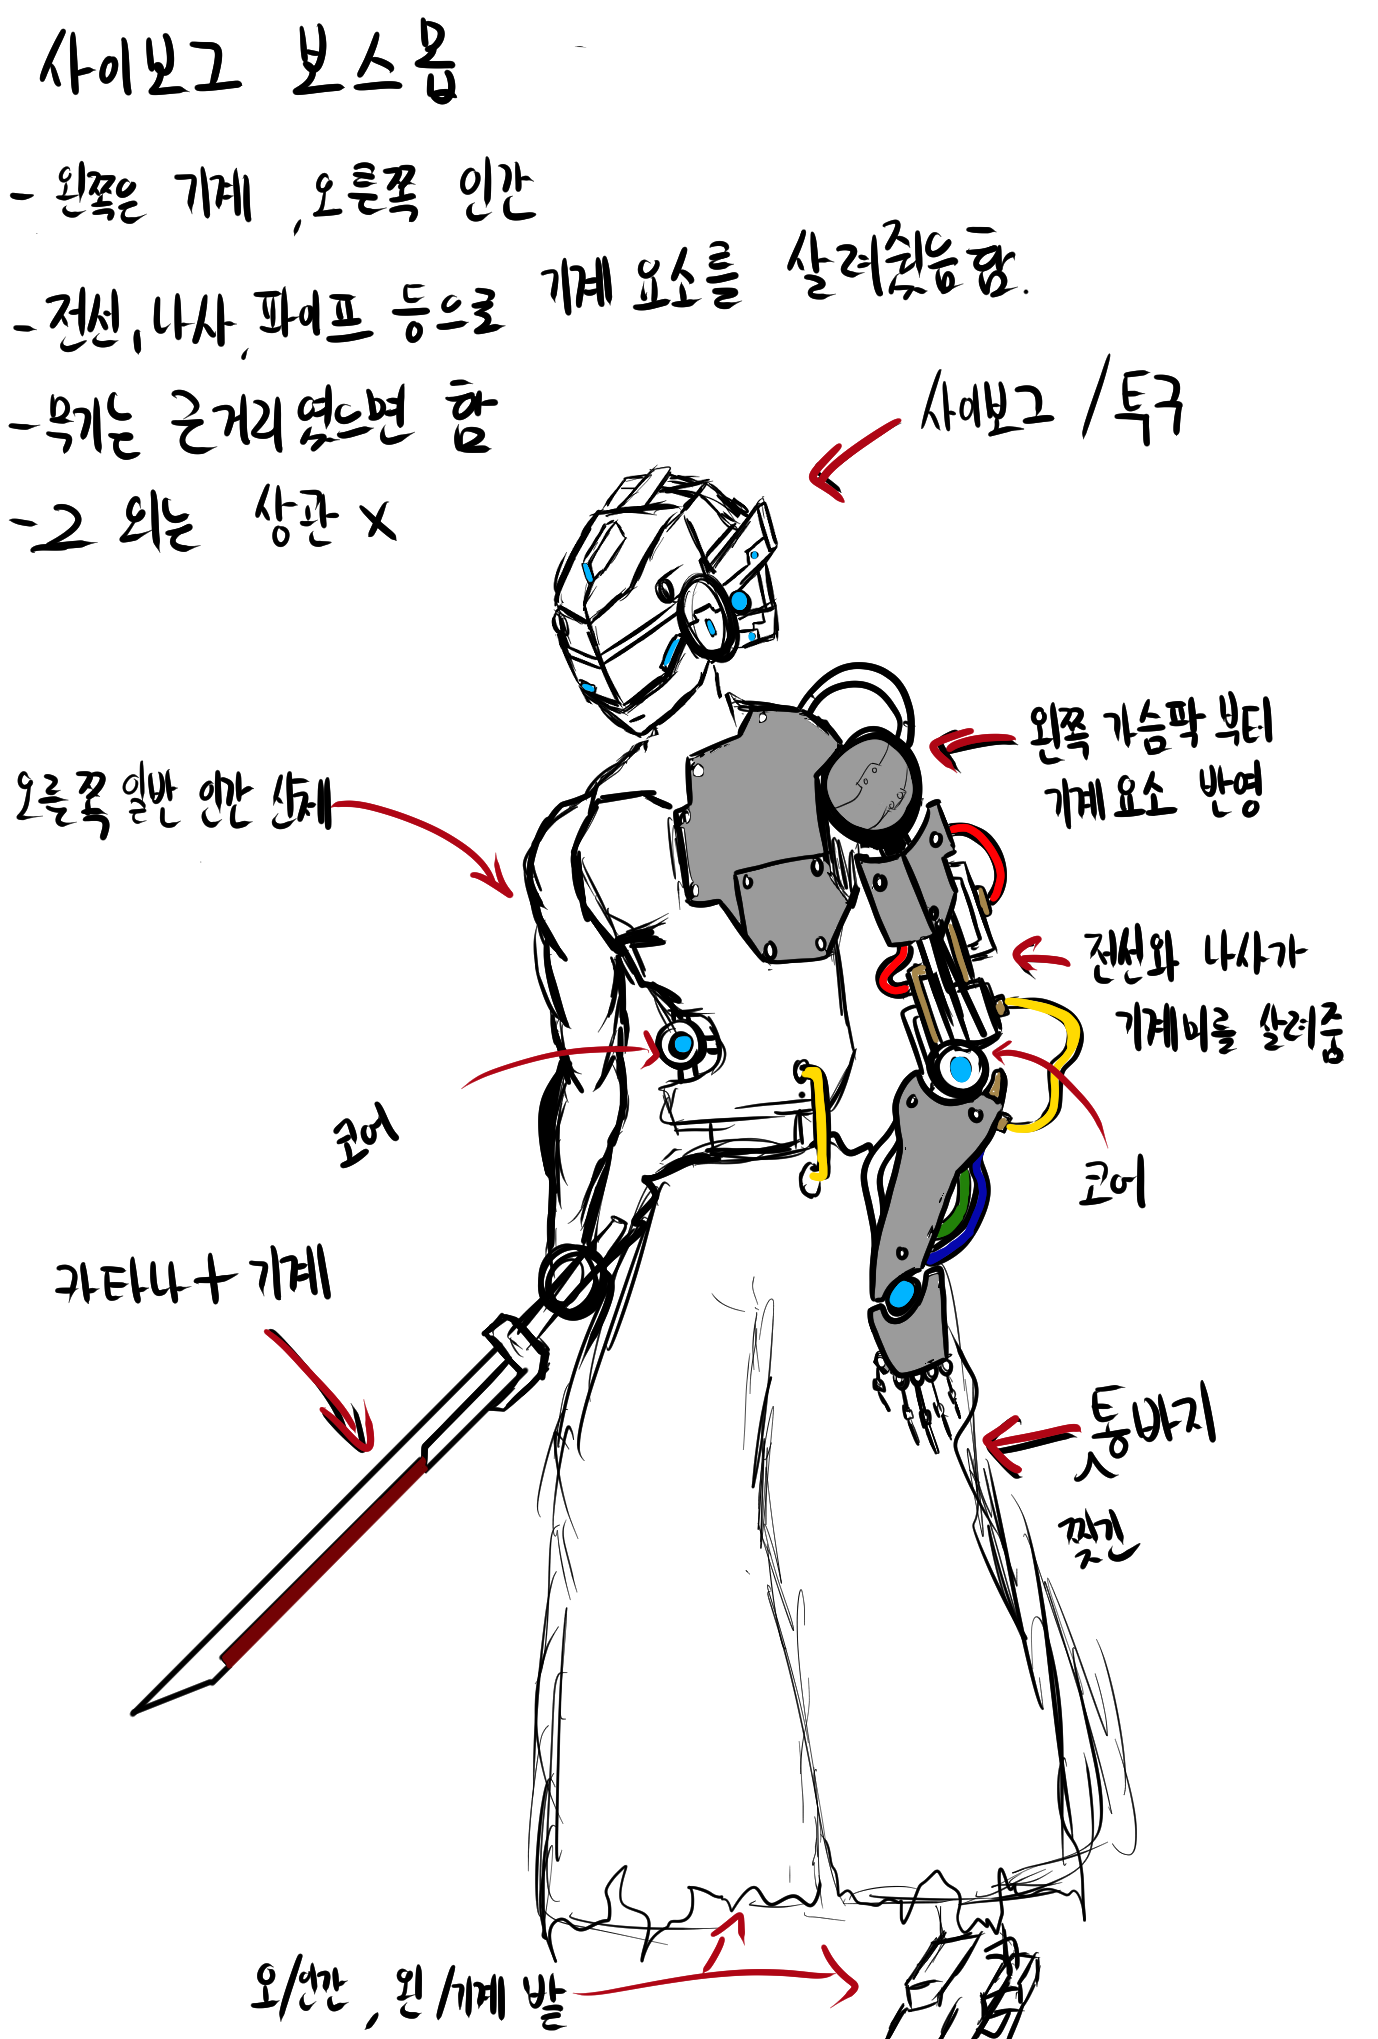 사이보그 보스몹
- 왼쪽은 기계, 오른쪽 인간
- 전선, 나사, 파이프 등으로 기계 요소를 살려줬음 함.
- 무기는 근거리였으면 함
- 그 외는 상관 X
사이보그 / 투구
왼쪽 가슴팍 부터
기계 요소 반영
오른쪽 일반 인간 신체
전선와 나사가
기계미를 살려줌
코어
코어
카타나 + 기계
통바지
찢긴
오/인간, 왼/기계 발